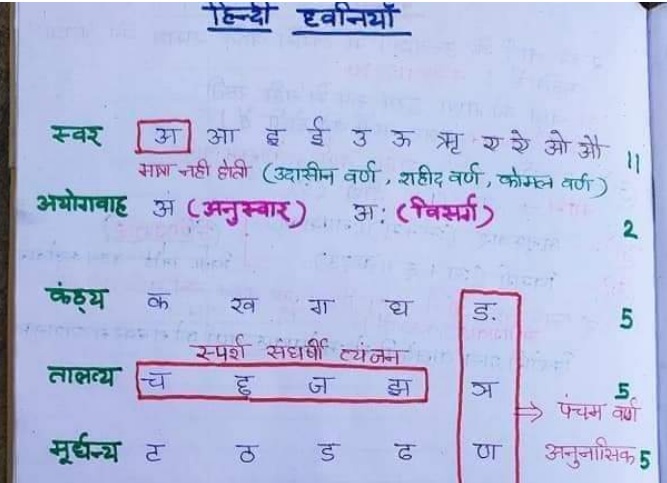 हिन्दी ध्वनियाँ
स्वर अ आ इ ई उ ऊ ऋ ए ऐ ओ औ 11
मात्रा नही होती (उदासीन वर्ण, शहीद वर्ण, कोमल वर्ण)
अयोगवाह अं (अनुस्वार) अ: (विसर्ग) 2
कंठ्य क ख ग घ ङ 5
स्पर्श संघर्षी व्यंजन
तालव्य च छ ज झ ञ 5
⇒ पंचम वर्ण
मूर्धन्य ट ठ ड ढ ण अनुनासिक 5